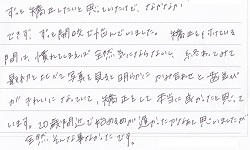 ずっと矯正したいと思っていたけど、なかなか
できず、ずっと何年も悩んでいました。矯正をしている
間は、慣れてしまえば全然気にならないし、終わってみて
最初と比べて写真を見ると明らかにかみ合わせと歯並び
がきれいになっていて、矯正をして本当に良かったと思って
います。20歳間近で始めるのが遅かったかなと思いましたが
全然、そんな事なかったです。